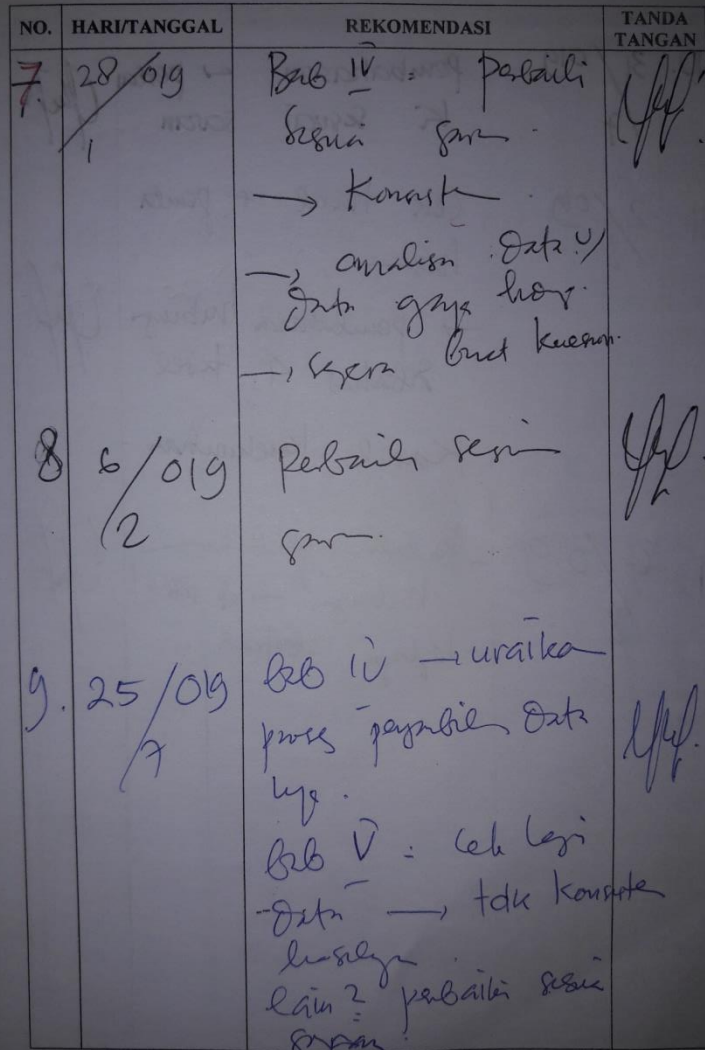 NO. HARI/TANGGAL REKOMENDASI TANDA TANGAN
7. 28/019 Bab IV = Perbaiki
1 sesuai saran.
→ Konsisten
→ analisa Data
Data gaya
→ segera buat kuesion.
8 6/019 Perbaiki sesuai
2 saran.
9. 25/019 bab IV → uraikan
7 proses pengambilan Data
nya.
bab V = cek lagi
Data → tdk konsisten
hasilnya
lain2 perbaiki sesuai
saran.